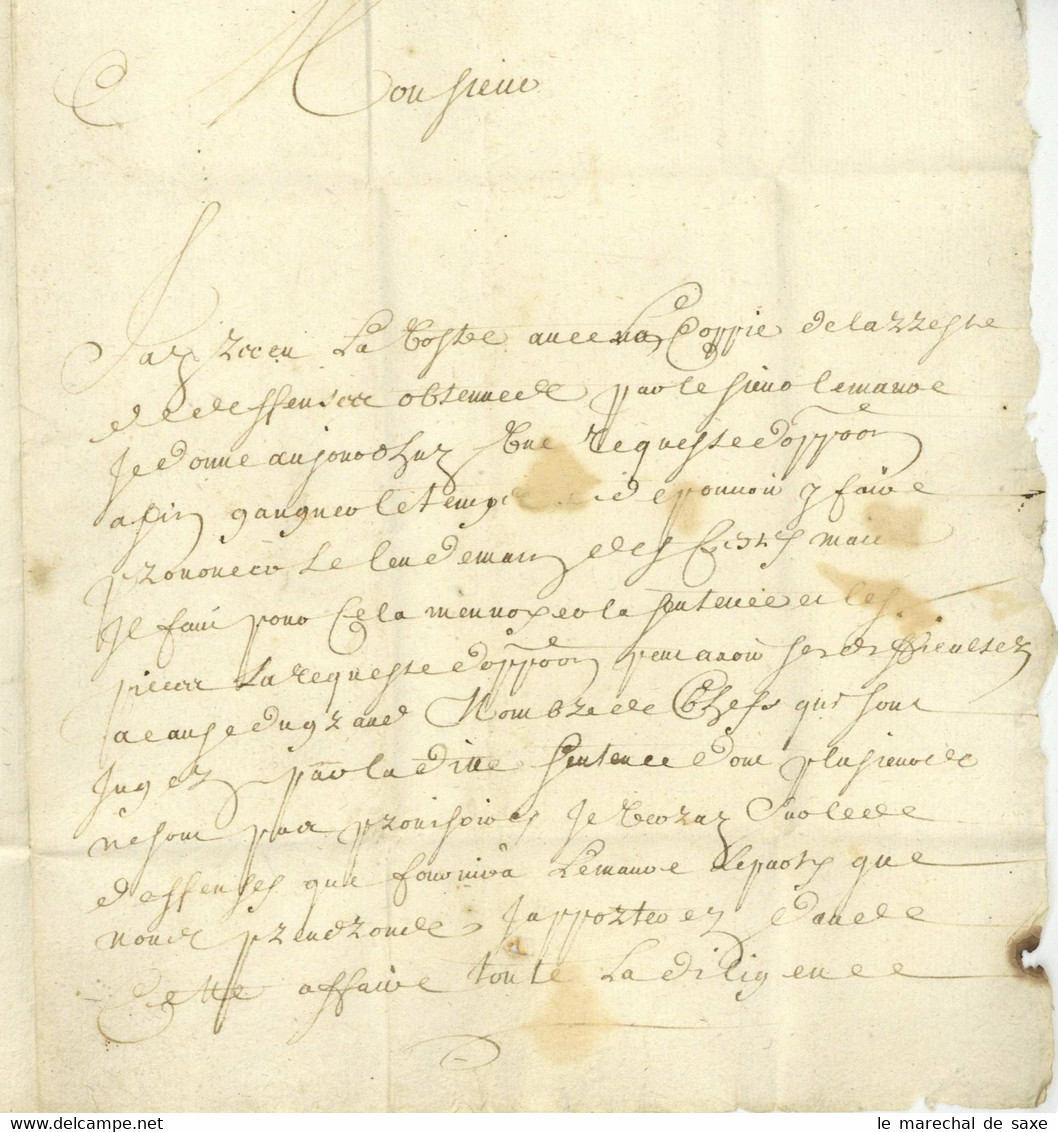 Monsieur
J'ay receu La Vostre avec la Coppie de larreste
de deffenses obtennede par le sieur lemaure
Je donne aujourdhuy Une requeste dopp̃on
afin gangner le temps de pouvoir y faire
prononcer le lendemain des mais
Je fais pour Cela mennoyer la sentence et les
pieces La requeste dopp̃on peut avoir ses difficultez
a cause du grand Nombre de Chefs qui sont
Jugez par la ditte sentence dont plusieurs
ne sont pas provisoires Je Verray Sur les
deffenses que fournira Lemaure le party que
nous prendrons Japporterez dans
Cette affaire toute La diligence
www.delcampe.net
le marechal de saxe